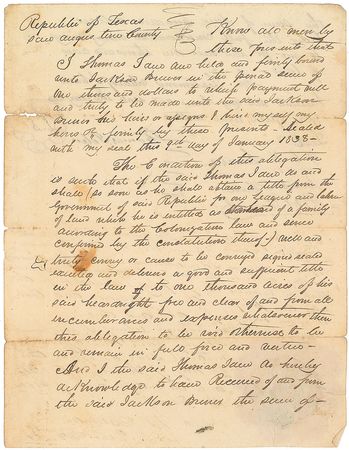 Republic of Texas
San augus tine County
Know all men by
these presents that
I Thomas am held and firmly bound
unto Jackson in the penal sum of
one thousand dollars to which payment well
and truly to be made unto the said Jackson
his heirs or assigns I bind my self my
heirs & family by these presents - Sealed
with my seal this 9th day of January 1838 -
The Condition of this obligation
is such that if the said Thomas do and
shall (so soon as he shall obtain a title from the
government of said Republic for one league and labor
of land which he is entitled as of a family
according to the Colonization laws and since
confirmed by the constitution thereof) well and
truly convey or cause to be conveyed signed sealed
and deliver a good and sufficient title
in the law to one thousand acres of his
said headright free and clear of and from all
incumberances and expenses whatsoever then
this obligation to be void otherwise to be
and remain in full force and
And I the said Thomas do hereby
acknowledge to have Received of and from
the said Jackson the sum of -